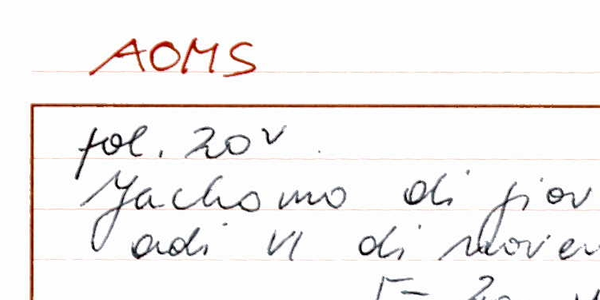 AOMS
fol. 20v
Jachomo di giov
adi VI di noven